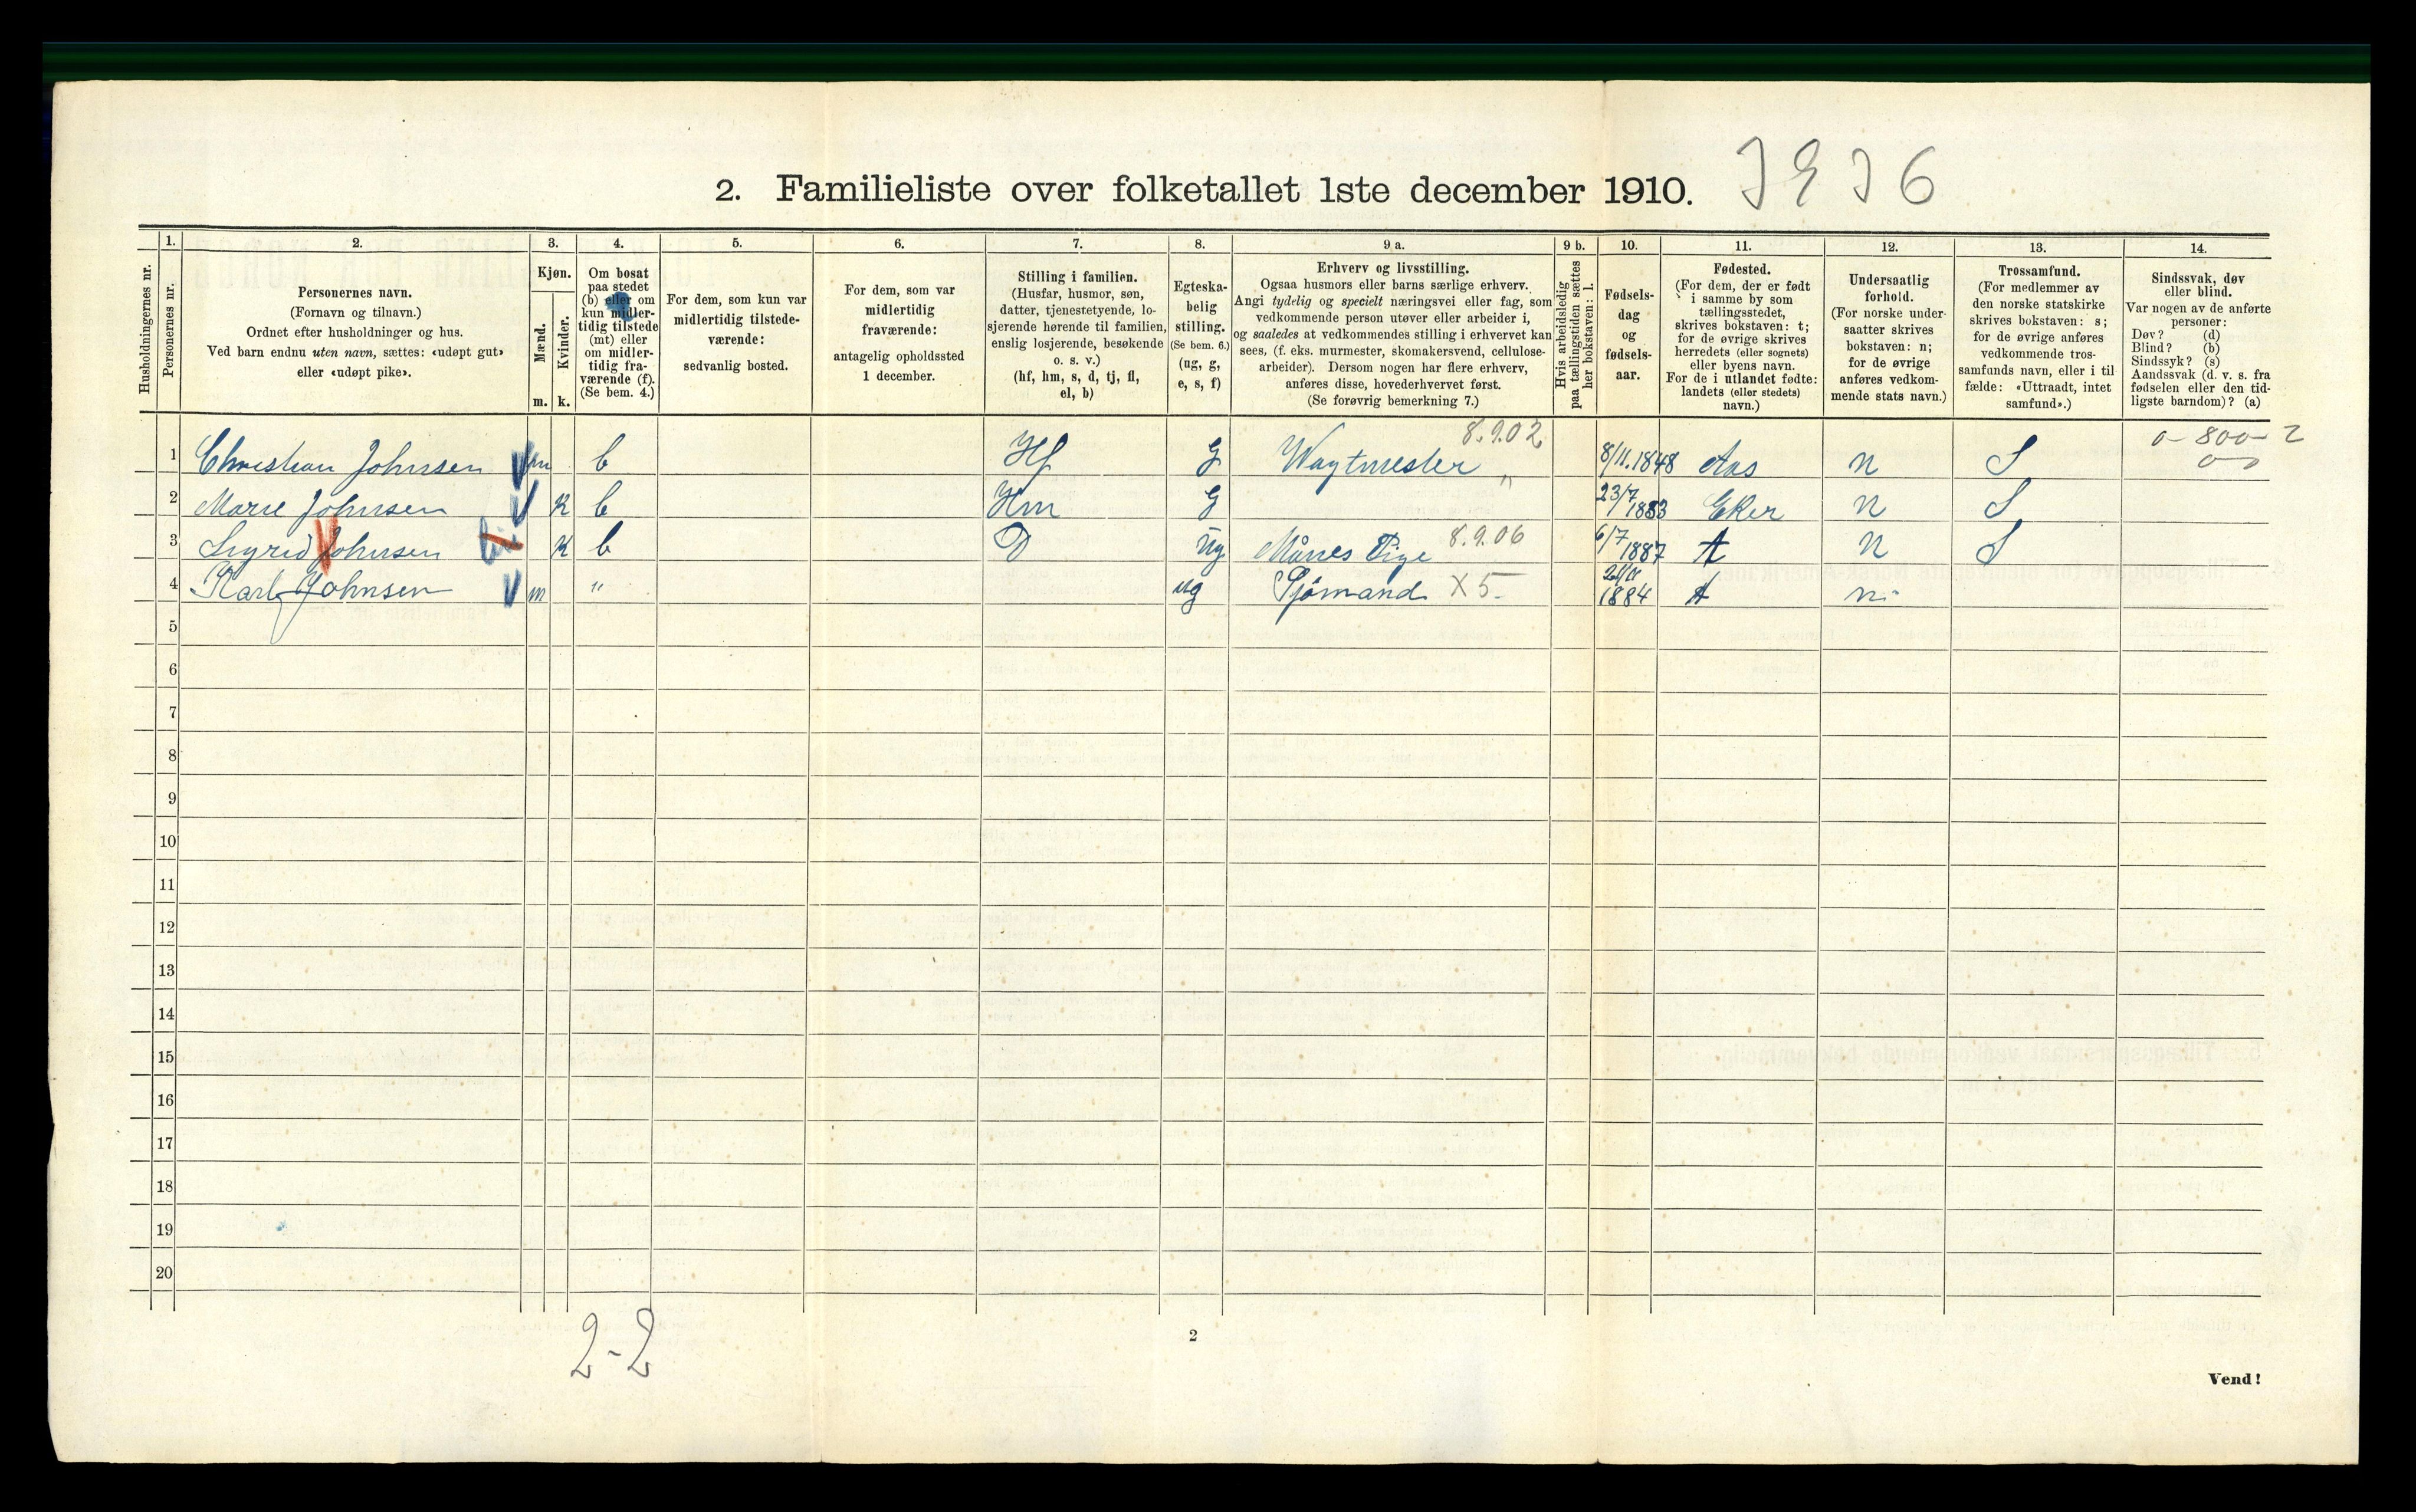 2. Familieliste over folketallet 1ste december 1910.
Husholdningernes nr.
1.
Personernes nr.
2.
Personernes navn.
(Fornavn og tilnavn.)
Ordnet efter husholdninger og hus.
Ved barn endnu uten navn, sættes: «udøpt gut»
eller «udøpt pike».
3.
Kjøn.
Mænd.
Kvinder.
m. k.
4.
Om bosat
paa stedet
(b) eller om
kun midler-
tidig tilstede
(mt) eller
om midler-
tidig fra-
værende (f).
(Se bem. 4.)
5.
For dem, som kun var
midlertidig tilstede-
værende:
sedvanlig bosted.
6.
For dem, som var
midlertidig
fraværende:
antagelig opholdssted
1 december.
7.
Stilling i familien.
(Husfar, husmor, søn,
datter, tjenestetyende, lo-
sjerende hørende til familien,
enslig losjerende, besøkende
o. s. v.)
(hf, hm, s, d, tj, fl,
el, b)
8.
Egteska-
belig
stilling.
(Se bem. 6.)
(ug, g,
e, s, f)
9 a.
Erhverv og livsstilling.
Ogsaa husmors eller barns særlige erhverv.
Angi tydelig og specielt næringsvei eller fag, som
vedkommende person utøver eller arbeider i,
og saaledes at vedkommendes stilling i erhvervet kan
sees, (f. eks. murmester, skomakersvend, cellulose-
arbeider). Dersom nogen har flere erhverv,
anføres disse, hovederhvervet først.
(Se forøvrig bemerkning 7.)
9 b.
Hvis arbeidsledig
paa tællingstiden sættes
her bokstaven: l.
10.
Fødsels-
dag
og
fødsels-
aar.
11.
Fødested.
(For dem, der er født
i samme by som
tællingsstedet,
skrives bokstaven: t;
for de øvrige skrives
herredets (eller sognets)
eller byens navn.
For de i utlandet fødte:
landets (eller stedets)
navn.)
12.
Undersaatlig
forhold.
(For norske under-
saatter skrives
bokstaven: n;
for de øvrige
anføres vedkom-
mende stats navn.)
13.
Trossamfund.
(For medlemmer av
den norske statskirke
skrives bokstaven: s;
for de øvrige anføres
vedkommende tros-
samfunds navn, eller i til-
fælde: «Uttraadt, intet
samfund».)
14.
Sindssvak, døv
eller blind.
Var nogen av de anførte
personer:
Døv? (d)
Blind? (b)
Sindssyk? (s)
Aandssvak (d. v. s. fra
fødselen eller den tid-
ligste barndom)? (a)
1 Christian Johnsen m b Hf G Wagtmester " 8.9.02 8/11.1848 Aas n S 0-800-2
2 Marie Johnsen k b Hm G 23/7 1853 Eker n S
3 Sigrid Johnsen k b D ug Månes Pige 8.9.06 6/7 1887 t n S
4 Karl Johnsen m " ug Sjømand X 5- 1884 t n
5
6
7
8
9
10
11
12
13
14
15
16
17
18
19
20
2-2
2
Vend!